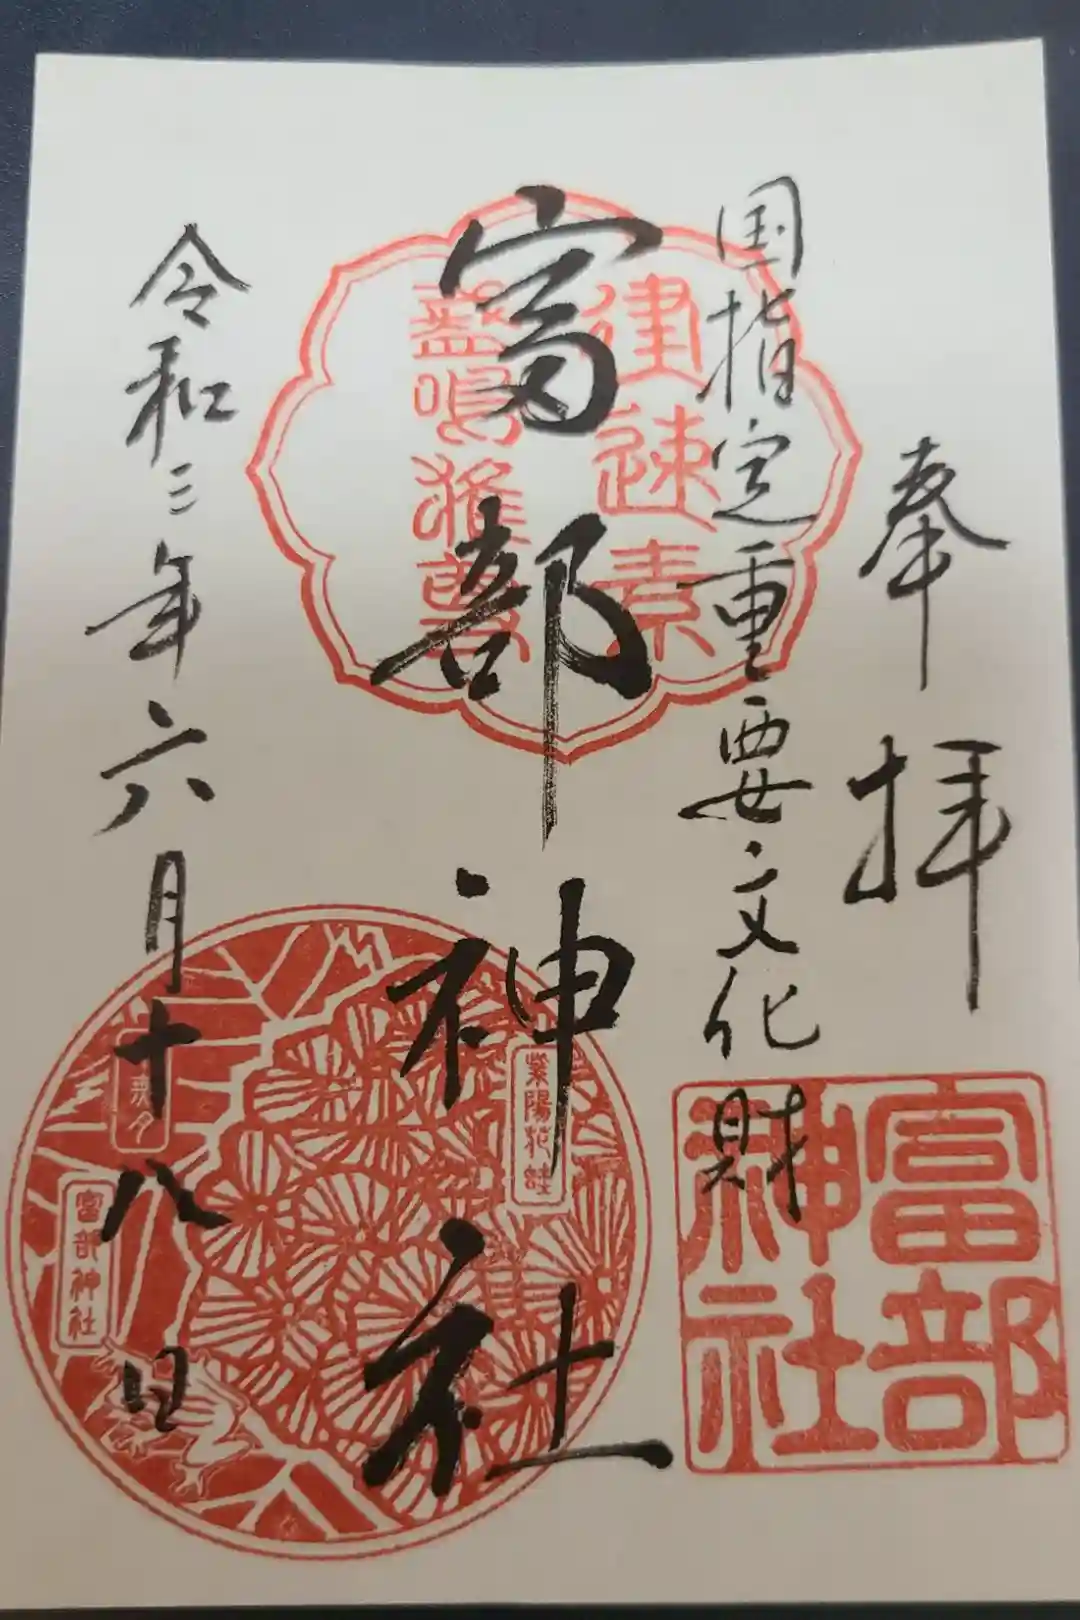 奉拝
国指定重要文化財
富部神社
令和三年六月十八日
建速素
盞嗚雄尊
富部
神社
紫陽花
富部神社